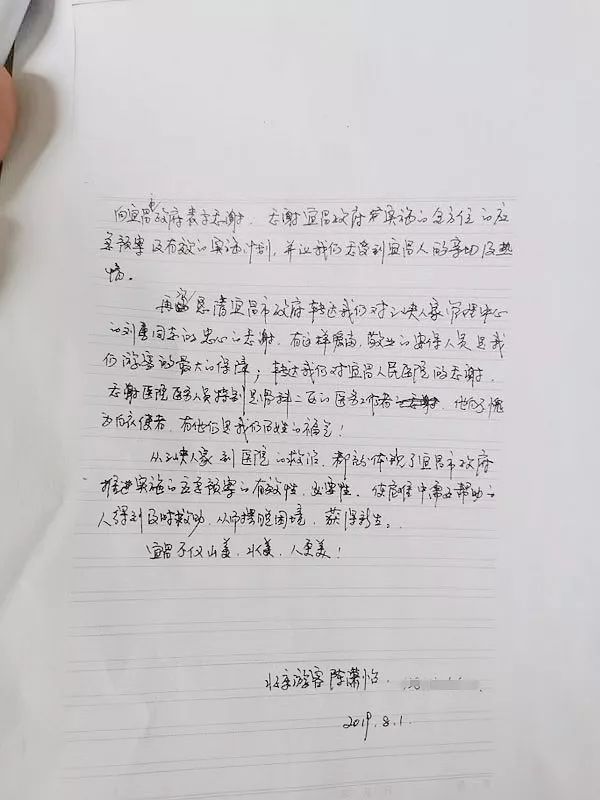 向宜昌市政府表示感谢，感谢宜昌政府实施的全方位的应
急预案及有效的实施计划，并让我们感受到宜昌人的亲切及热
情。
再次恳请宜昌市政府转达我们对三峡人家管理中心
的刘勇同志的忠心的感谢，有这样爱岗、敬业的安保人员是我
们游客的最大的保障；转达我们对宜昌人民医院的感谢，
感谢医院医务人员特别是骨科二区的医务工作者，他们不愧
为白衣使者，有他们是我们百姓的福气！
从三峡人家到医院的救治，都体现了宜昌市政府
推进实施的应急预案的有效性，必要性，使危难中需要帮助的
人得到及时救助，从而摆脱困境，获得新生。
宜昌不仅山美，水美，人更美！
北京游客 陈萧怡
2019.8.1.